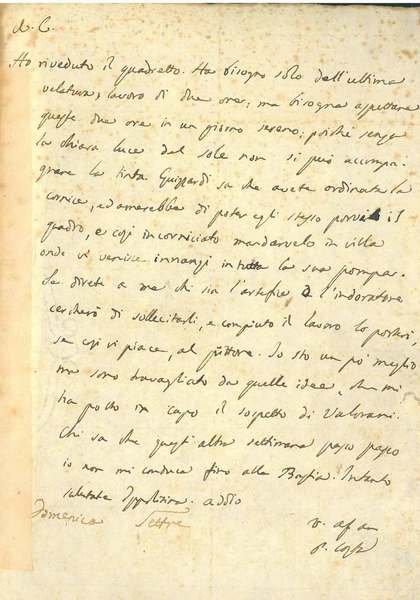 A. C.
Ho riveduto il quadretto. Ha bisogno solo dell'ultima
velatura, lavoro di due ore; ma bisogna aspettare
queste due ore in un giorno sereno; poichè senza
la chiara luce del sole non si può accompa-
gnare la tinta Guizzardi sa che avete ordinata la
cornice, ed amerebbe di poter egli stesso porvi il
quadro, e così incorniciato mandarvelo in villa
onde vi venisse innanzi in tutta la sua pompa.
Se direte a me chi sia l'artefice e l'indoratore
cercherò di sollecitarli, e compiuto il lavoro lo porterò,
se così vi piace, al pittore. Io sto un po' meglio
ma sono travagliato da quelle idee, che mi
ha posto in capo il sospetto di Valorani.
Chi sa che quest'altra settimana passo passo
io non mi conduca fino alla Intanto
salutate Ippolitina. addio
Domenica Settre
v. aff am
P. Costa